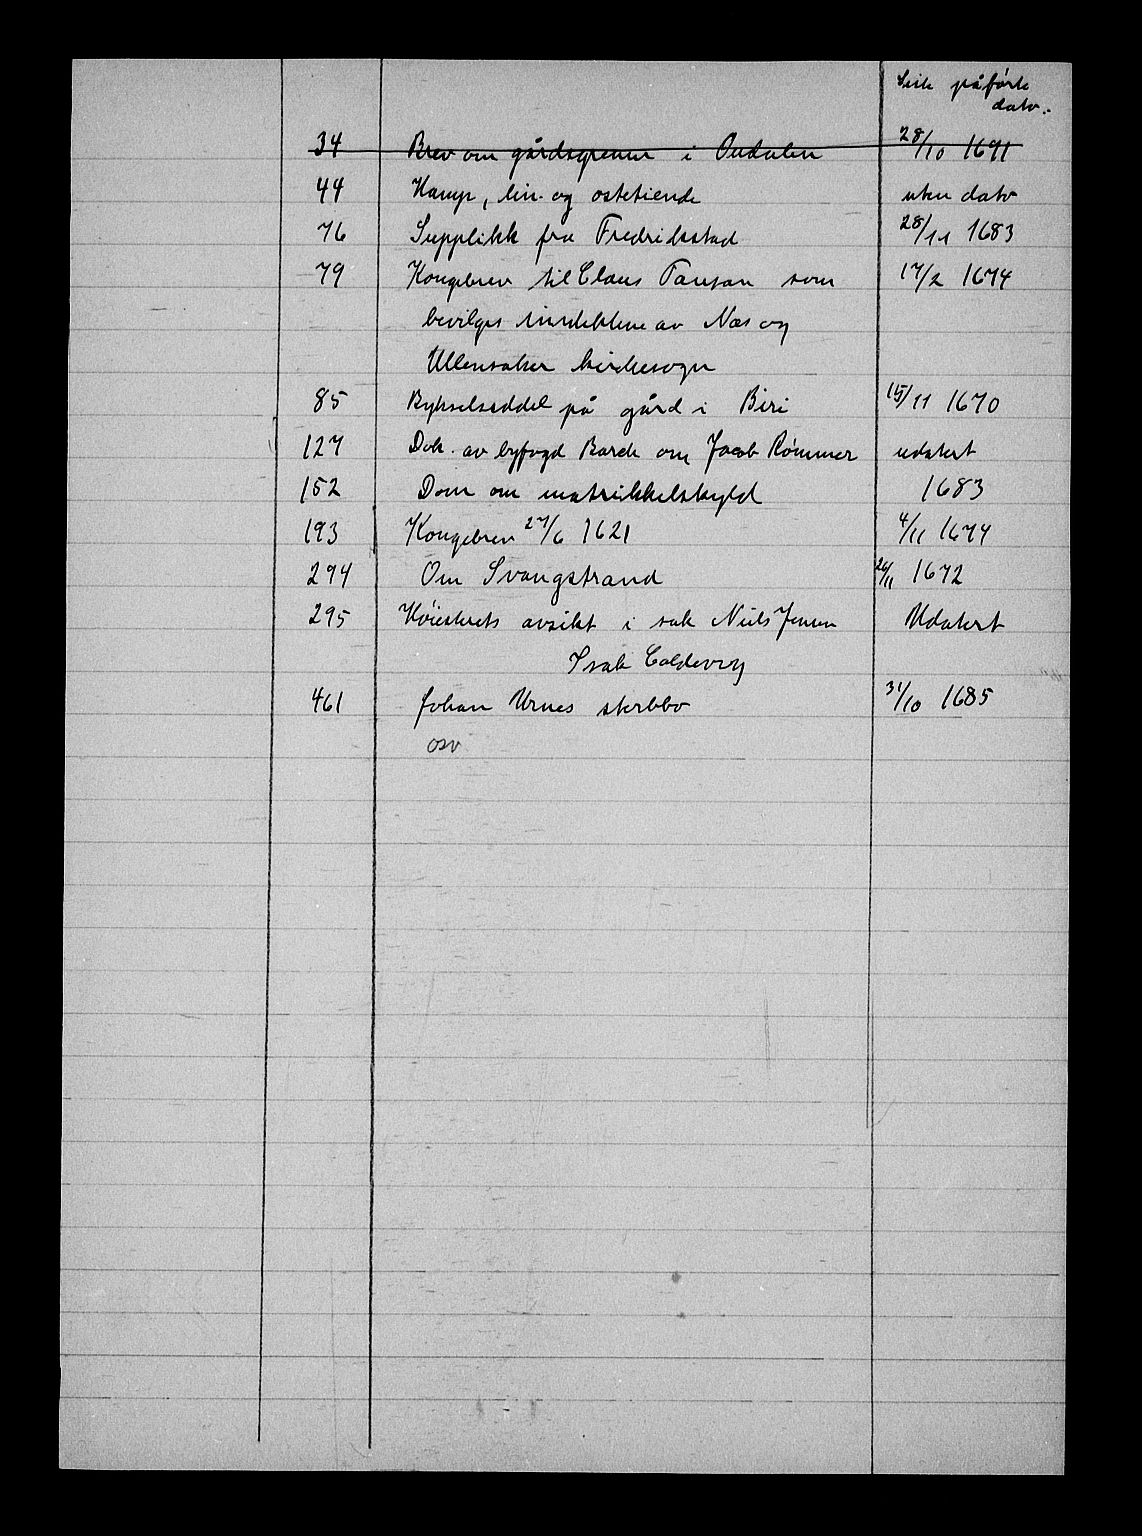 Sist påførte
dato.
34 Brev om gårdsgrenser i Ondalen 28/10 1691
44 Hamp, lin- og ostetiende uten dato
76 Supplikk fra Fredrikstad 28/11 1683
79 Kongebrev til Claus Pausan som 17/2 1674
bevilges inntektene av Nes og
Ullensaker kirkesogn
85 Bykselseddel på gård i Biri 15/11 1670
127 Dok. av byfogd Barck om Jacob Rømmer udatert
152 Dom om matrikkelskyld 1683
193 Kongebrev 27/6 1621 4/11 1674
294 Om Svangstrand 26/11 1672
295 Høiesterets avsikt i sak Niels Jensen Udatert
Isak Coldevey
461 Johan Urnes sterbbo 31/10 1685
osv